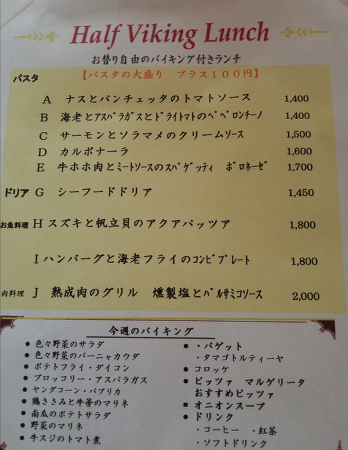 Half Viking Lunch
お替り自由のバイキング付きランチ
パスタ 【パスタの大盛り プラス１００円】
A ナスとパンチェッタのトマトソース 1,400
B 海老とアスパラガスとドライトマトのペペロンチーノ 1,400
C サーモンとソラマメのクリームソース 1,500
D カルボナーラ 1,600
E 牛ホホ肉とミートソースのスパゲッティ ボロネーゼ 1,700
ドリア G シーフードドリア 1,450
お魚料理 H スズキと帆立貝のアクアパッツァ 1,800
I ハンバーグと海老フライのコンビプレート 1,800
肉料理 J 熟成肉のグリル 燻製塩とバルサミコソース 2,000
今週のバイキング
● 色々野菜のサラダ
● 色々野菜のバーニャカウダ
● ポテトフライ・ダイコン
● ブロッコリー・アスパラガス
● ヤングコーン・パプリカ
● 鶏ささみと牛蒡のマリネ
● 南瓜のポテトサラダ
● 野菜のマリネ
● 牛スジのトマト煮
● ・バゲット
・タマゴトルティーヤ
● コロッケ
● ピッツァ マルゲリータ
おすすめピッツァ
● オニオンスープ
● ドリンク
・コーヒー ・紅茶
・ソフトドリンク